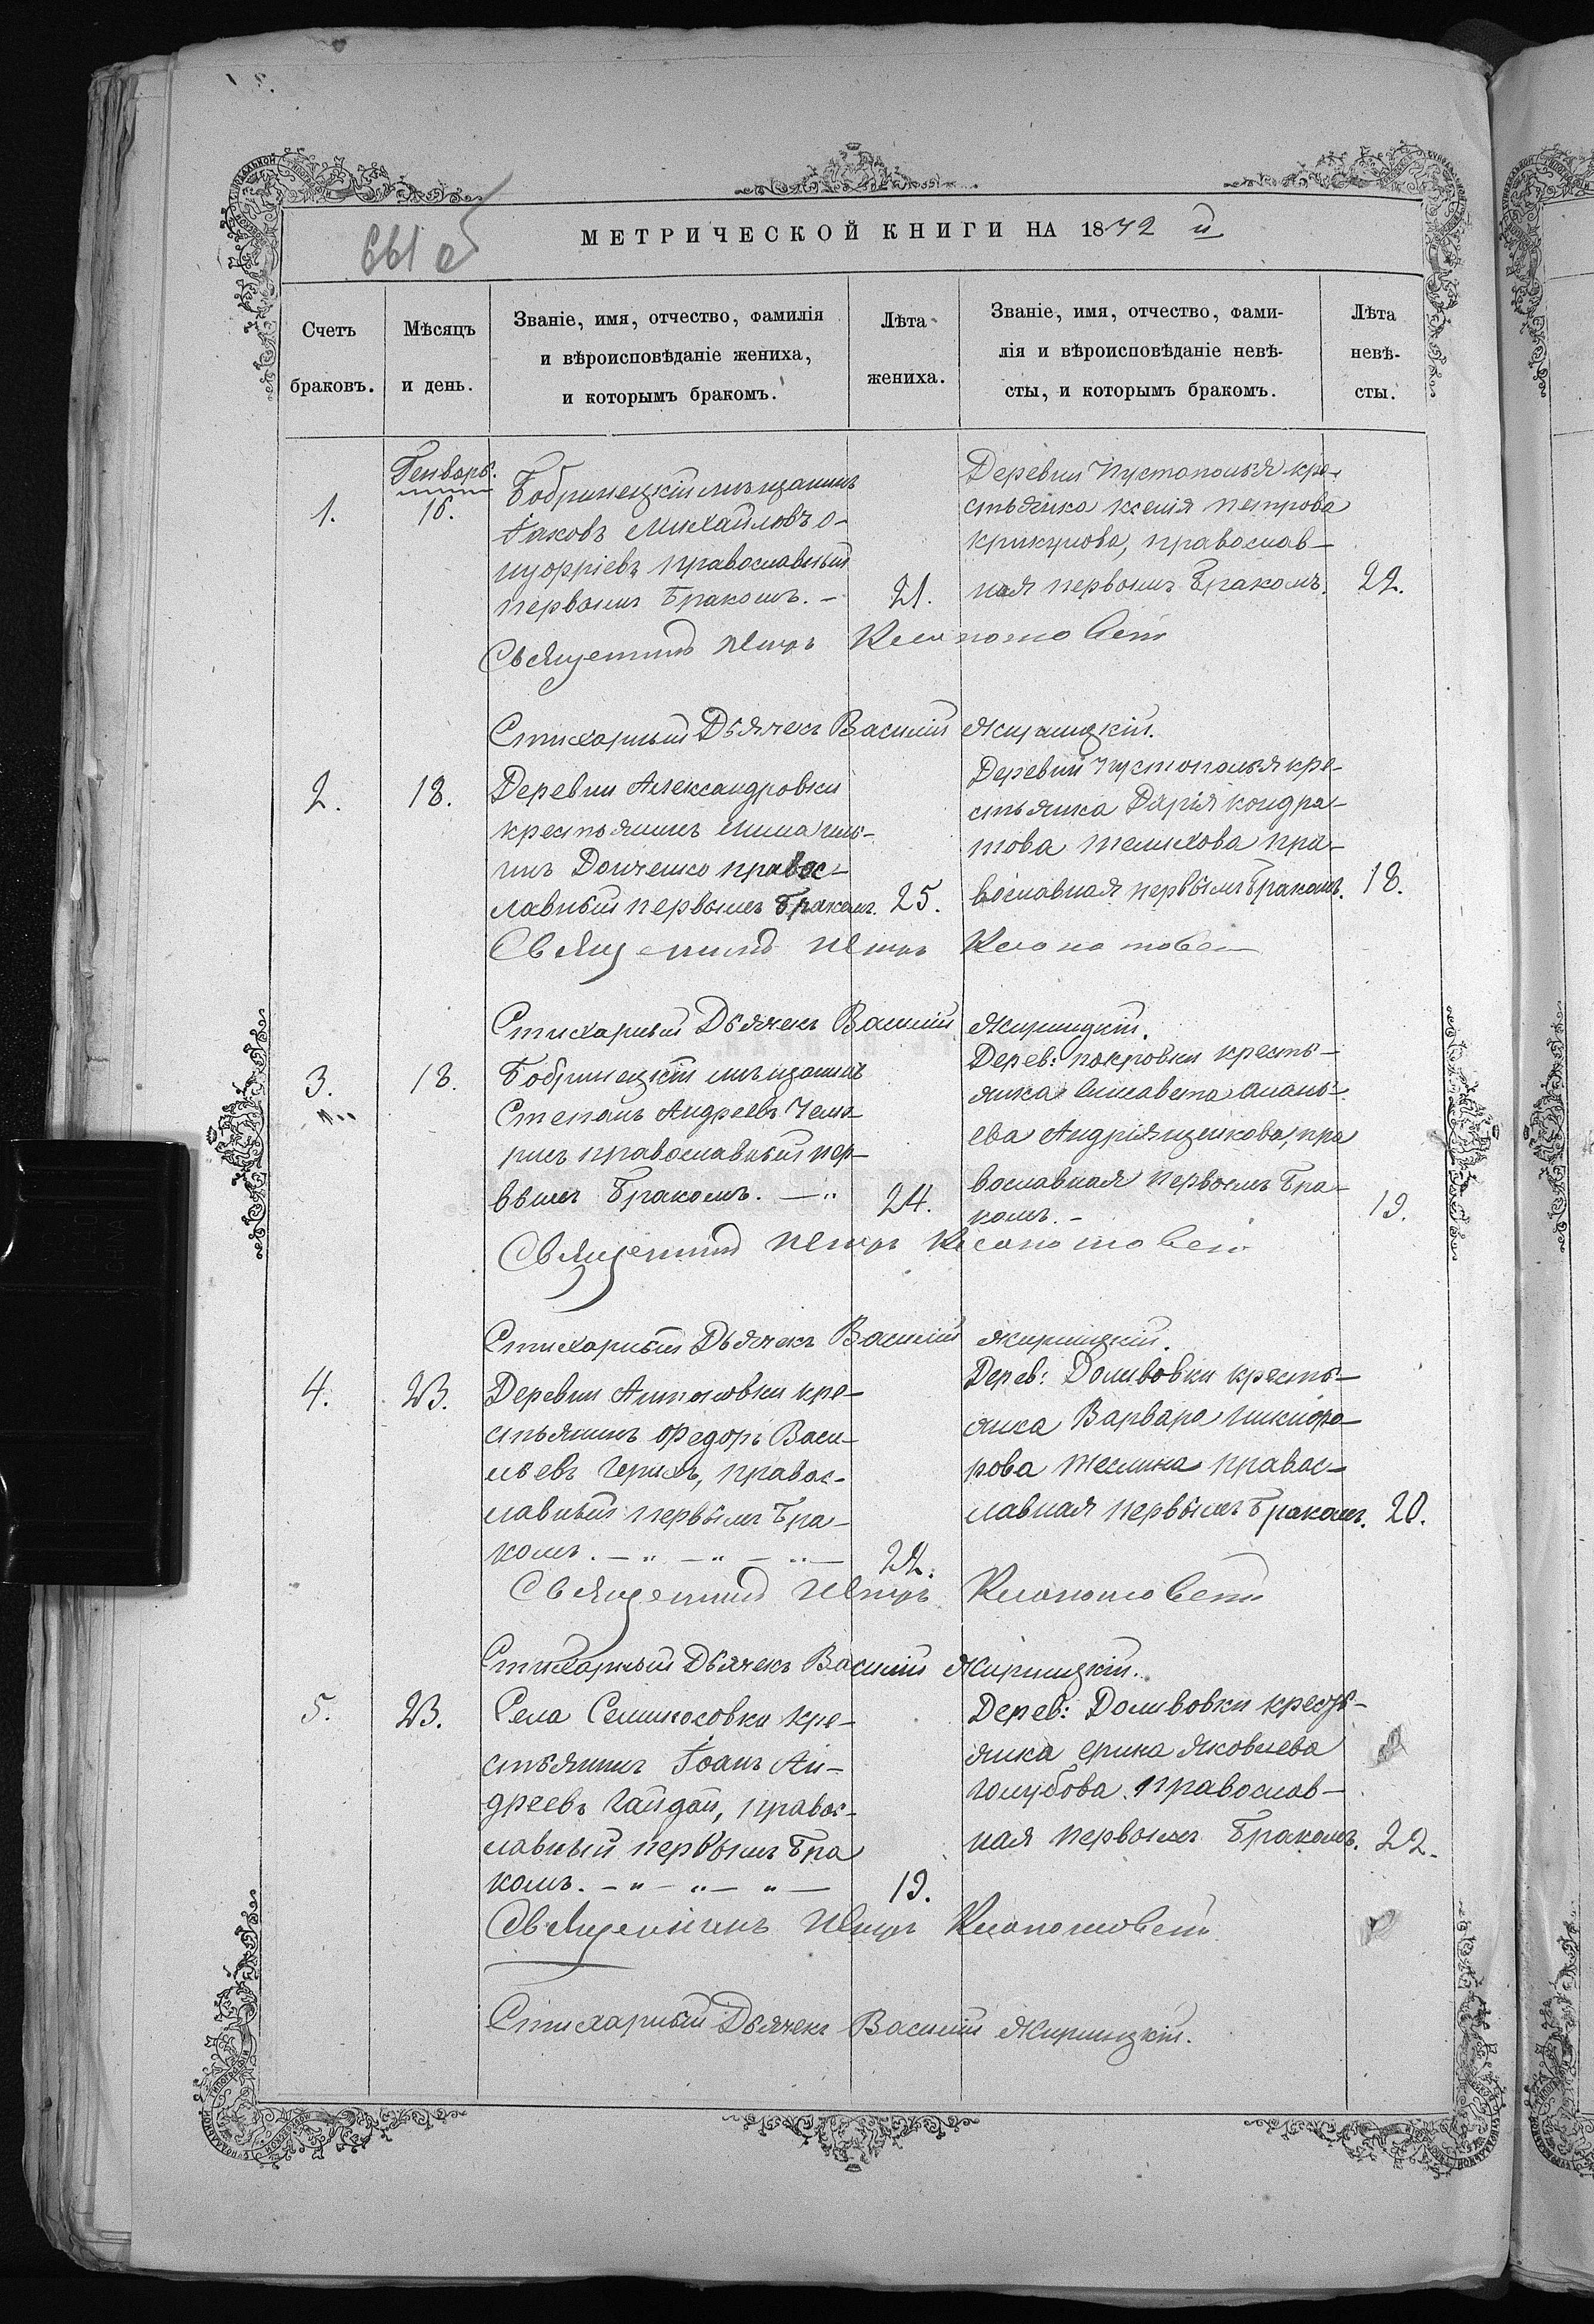 МЕТРИЧЕСКОЙ КНИГИ НА 1872 й
Счетъ
браковъ.
Мѣсяцъ
и день.
Званіе, имя, отчество, фамилія
и вѣроисповѣданіе жениха,
и которымъ бракомъ.
Лѣта
жениха.
Званіе, имя, отчество, фами-
лія и вѣроисповѣданіе невѣ-
сты, и которымъ бракомъ.
Лѣта
невѣ-
сты.
Генварь.
1.
16.
Бобринецкій мѣщанинъ
Іаковъ Михайловъ О-
нуфріевъ православный
первымъ бракомъ. –
21.
Деревни Пустополья кре-
стьянка Ксенія Петрова
Крикунова, православ-
ная первымъ бракомъ.
22.
Священникъ Петръ
Стихарный Дьячекъ Василій Жирицкій.
2.
18.
Деревни Александровки
крестьянинъ
Донченко правос-
лавный первымъ бракомъ.
25.
Деревни Пустополья кре-
стьянка Дарія Кондра-
това Телихова пра-
вославная первымъ бракомъ.
18.
Священникъ Петръ
Стихарный Дьячекъ Василій Жирицкій.
3.
18.
Бобринецкій мѣщанинъ
Степанъ Андреевъ
православный пер-
вымъ бракомъ. –"
24.
Дерев: Покровки кресть-
янка Елисавета Анань-
ева Андріященкова, пра
вославная первымъ бра-
комъ. –
19.
Священникъ Петръ
Стихарный Дьячекъ Василій Жирицкій.
4.
23.
Деревни Антоновки кре-
стьянинъ Федоръ Васи-
льевъ правос-
лавный первымъ бра-
комъ. – " – " – " –
22.
Дерев: Доливовки кресть-
янка Варвара Никифо-
рова правос-
лавная первымъ бракомъ.
20.
Священникъ Петръ
Стихарный Дьячекъ Василій Жирицкій.
5.
23.
Села кре-
стьянинъ Іоанъ Ан-
дреевъ Гайдай, правос-
лавный первымъ бра
комъ. – " – " – " –
19.
Дерев: Доливовки кресть-
янка Ирина Яковлева
Голубова православ-
ная первымъ бракомъ.
22.
Священникъ Петръ
Стихарный Дьячекъ Василій Жирицкій.